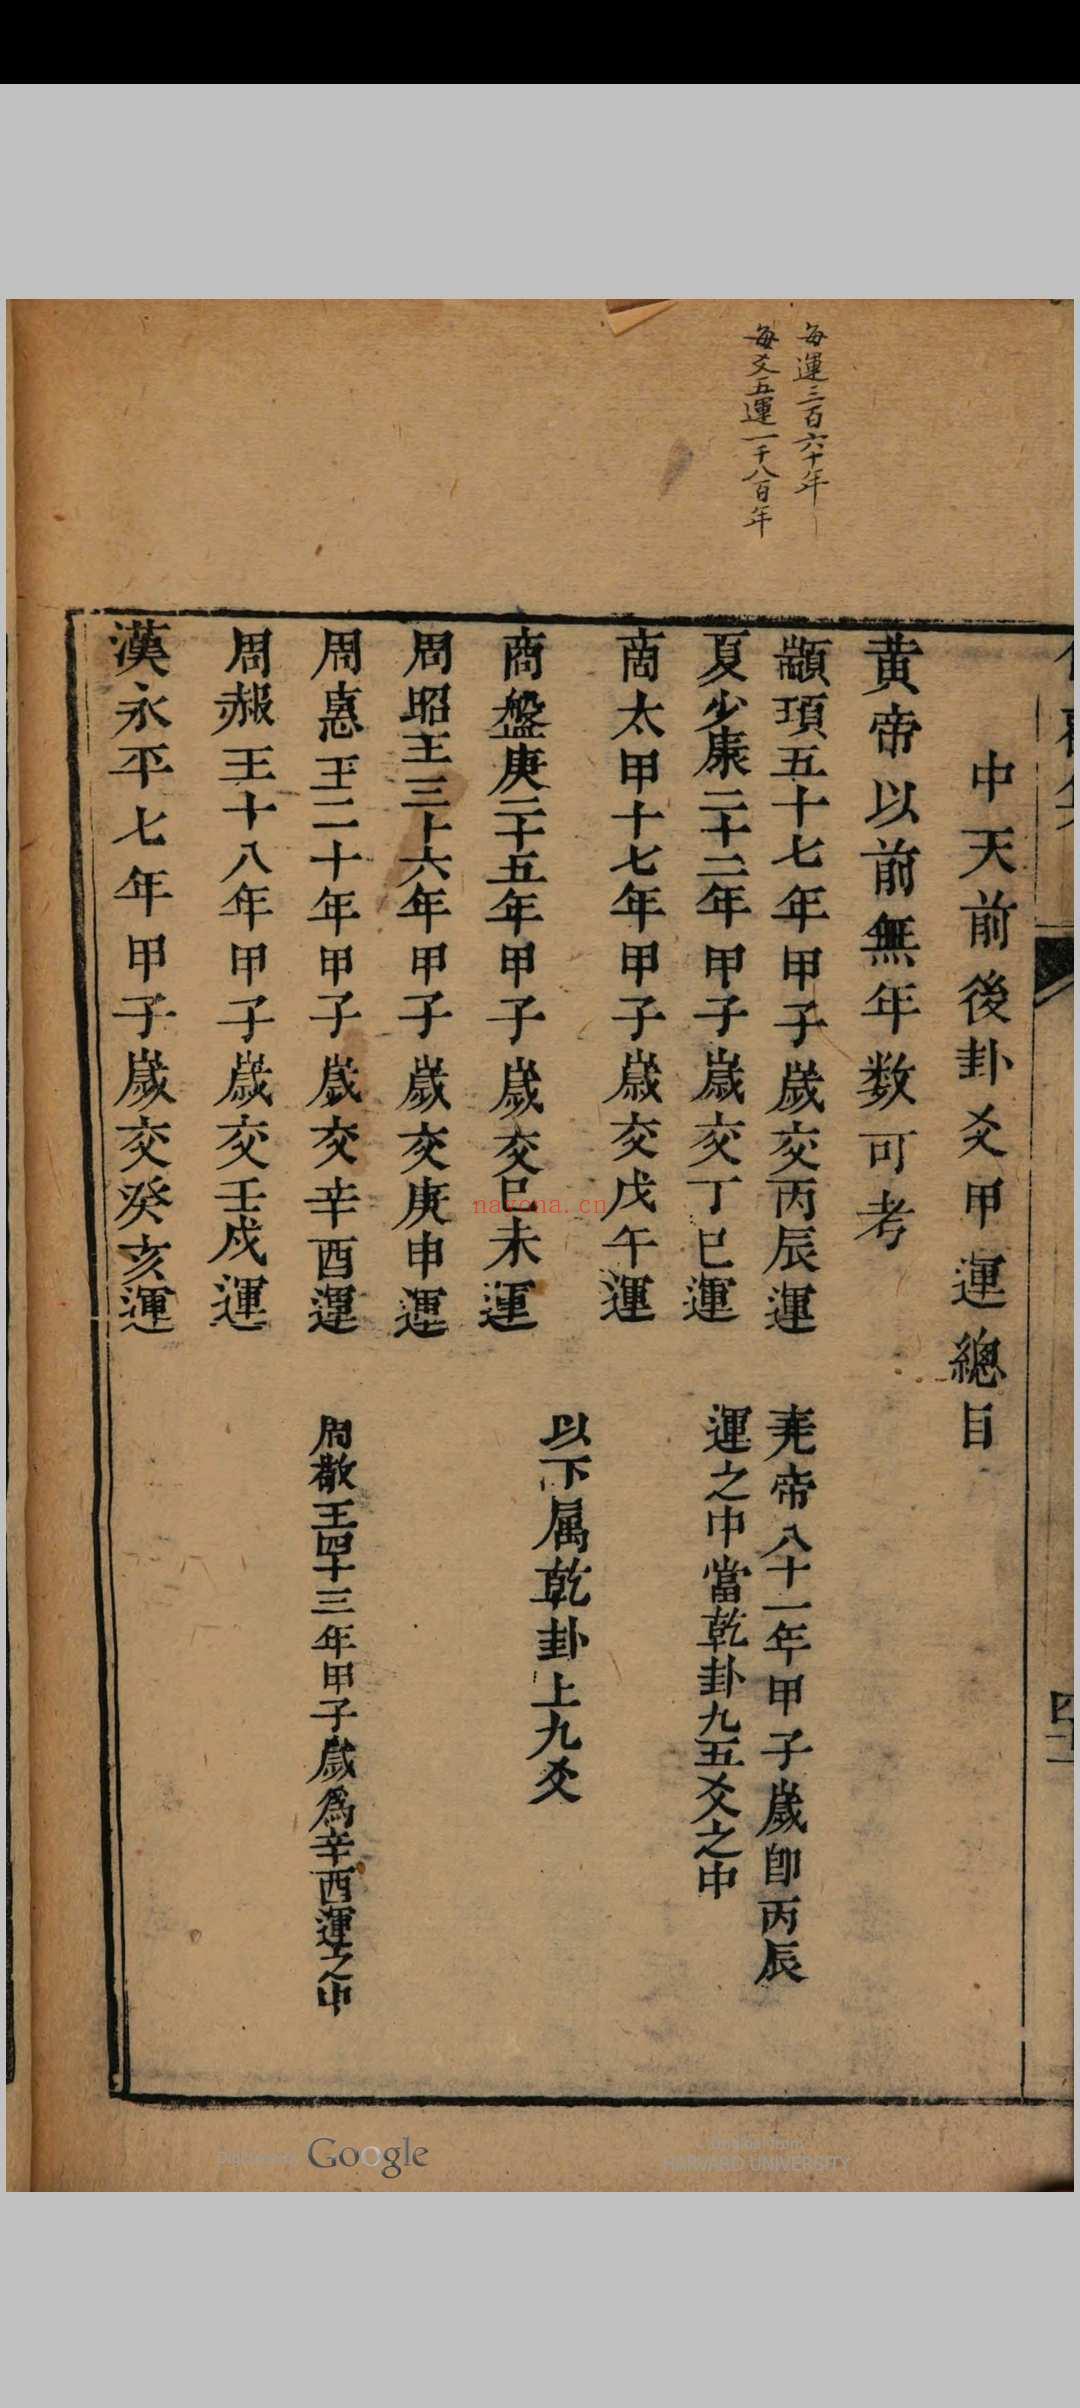 每運三百六十年
每爻五運一千八百年
中天前後卦爻甲運總目
黄帝以前無年数可考
顓頊五十七年甲子歲交丙辰運
堯帝八十一年甲子歲卽丙辰
運之中當乾卦九五爻之中
夏少康二十二年甲子歲交丁巳運
商太甲十七年甲子歲交戊午運
以下属乾卦上九爻
商盤庚二十五年甲子歲交巳未運
周昭王三十六年甲子歲交庚申運
周惠王二十年甲子歲交辛酉運
周敬王四十三年甲子歲爲辛酉運之中
周赧王十八年甲子歲交壬戍運
漢永平七年甲子歲交癸亥運
nayona.cn
Google
HARVARD UNIVERSITY